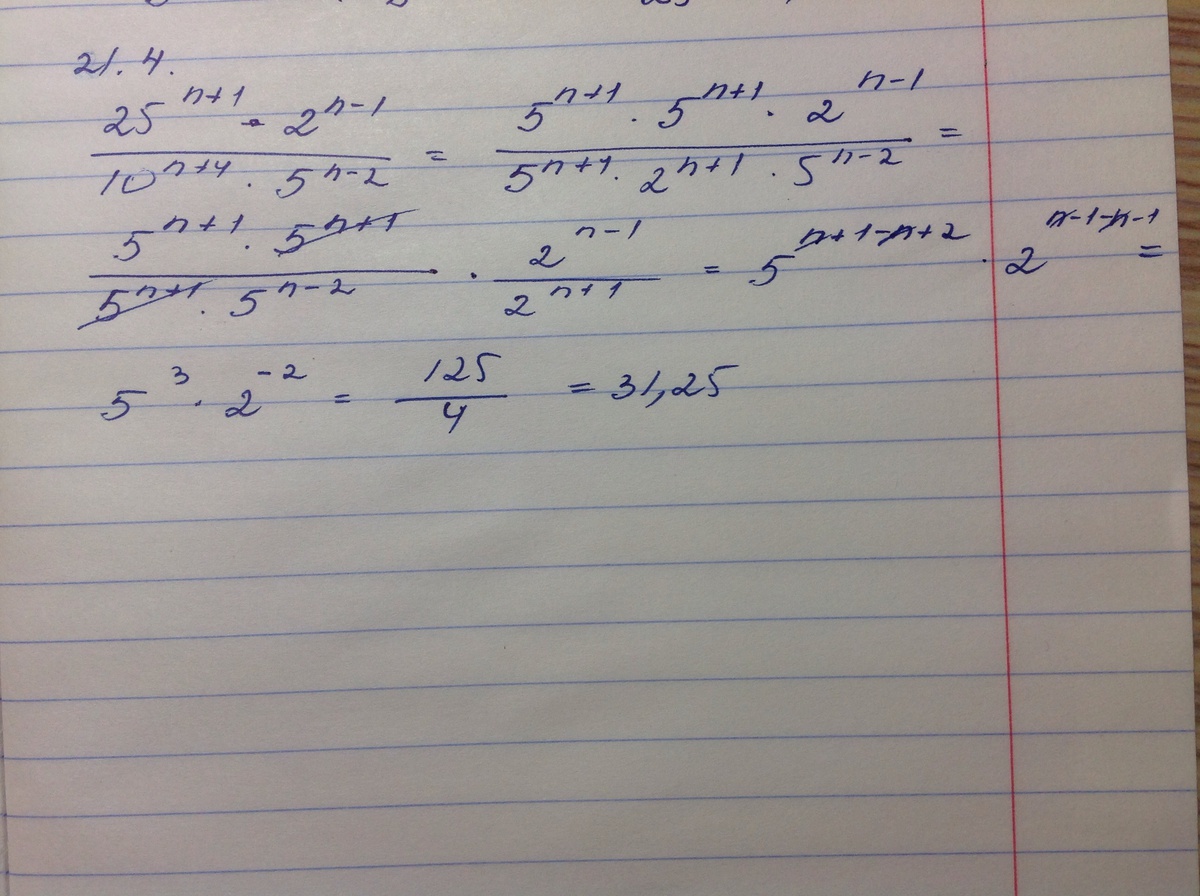 21.4.
25^{n+1} · 2^{n-1} / 10^{n+4} · 5^{n-2} = 5^{n+1} · 5^{n+1} · 2^{n-1} / 5^{n+1} · 2^{n+1} · 5^{n-2} =
5^{n+1} · 5^{n+1} / 5^{n+1} · 5^{n-2} · 2^{n-1} / 2^{n+1} = 5^{n+1-n+2} · 2^{n-1-n-1} =
5^{3} · 2^{-2} = 125 / 4 = 31,25